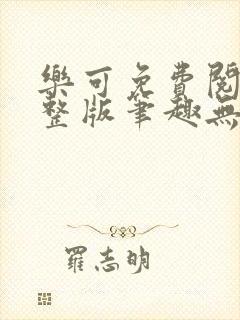 樂可免費閱
整版筆趣無
羅志明